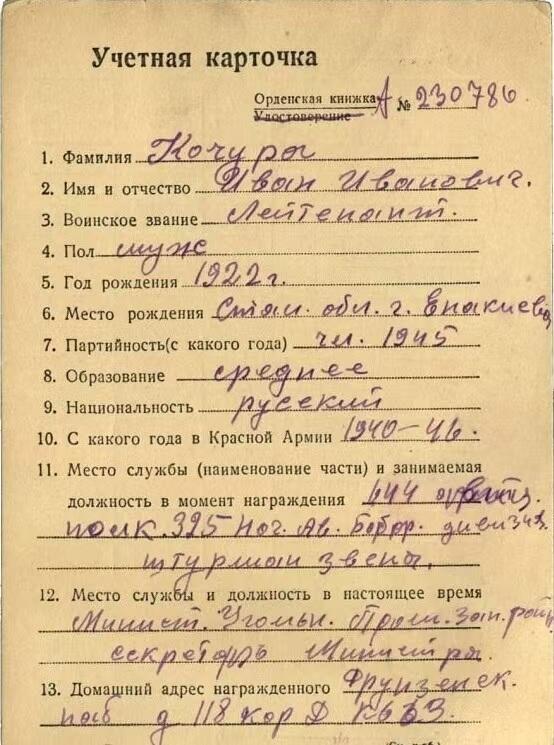 Учетная карточка
Орденская книжка А № 230786
Удостоверение
1. Фамилия Кочуры
2. Имя и отчество Иван Иванович.
3. Воинское звание Лейтенант.
4. Пол муж
5. Год рождения 1922 г.
6. Место рождения Стал. обл. г. Енакиево
7. Партийность(с какого года) чл. 1945
8. Образование среднее
9. Национальность русский
10. С какого года в Красной Армии 1940-46.
11. Место службы (наименование части) и занимаемая
должность в момент награждения 644
полк. 325 Ноч. Ав. Бобр.
штурман звена.
12. Место службы и должность в настоящее время
Минист. Угольн. Пром. Зап.
секретарь Министра.
13. Домашний адрес награжденного Фрунзенск.
наб д 118 кор Д К. 663.